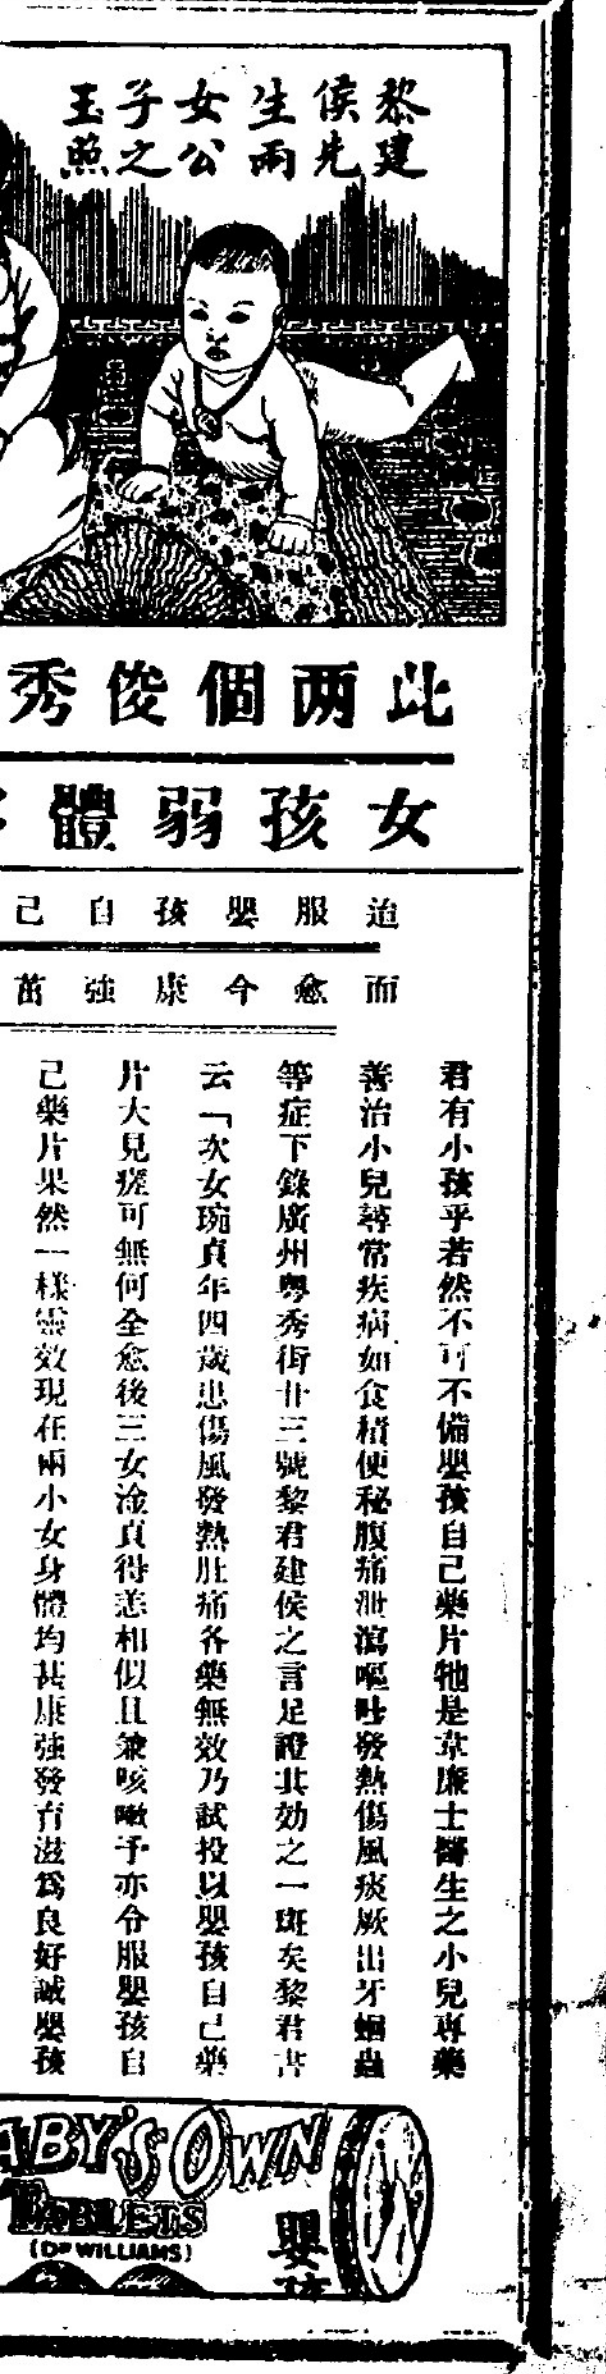 黎建
侯先
生兩
女公
子之
玉照
此两個俊秀
女孩弱體
迨服嬰孩自己
而愈今康強茁
君有小孩乎若然不可不備嬰孩自己藥片牠是韋廉士醫生之小兒專藥
善治小兒尋常疾病如食積便秘腹痛泄瀉嘔吐發熱傷風痰厥出牙蛔蟲
等症下錄廣州粤秀街廿三號黎君建侯之言足證其効之一斑矣黎君書
云「次女琬貞年四歲患傷風發熱肚痛各藥無效乃試投以嬰孩自己藥
片大見瘥可無何全愈後三女淦貞得恙相似且兼咳嗽予亦令服嬰孩自
己藥片果然一樣靈效現在兩小女身體均甚康強發育滋爲良好誠嬰孩
ABY'S OWN
TABLETS
(DR WILLIAMS)
嬰孩